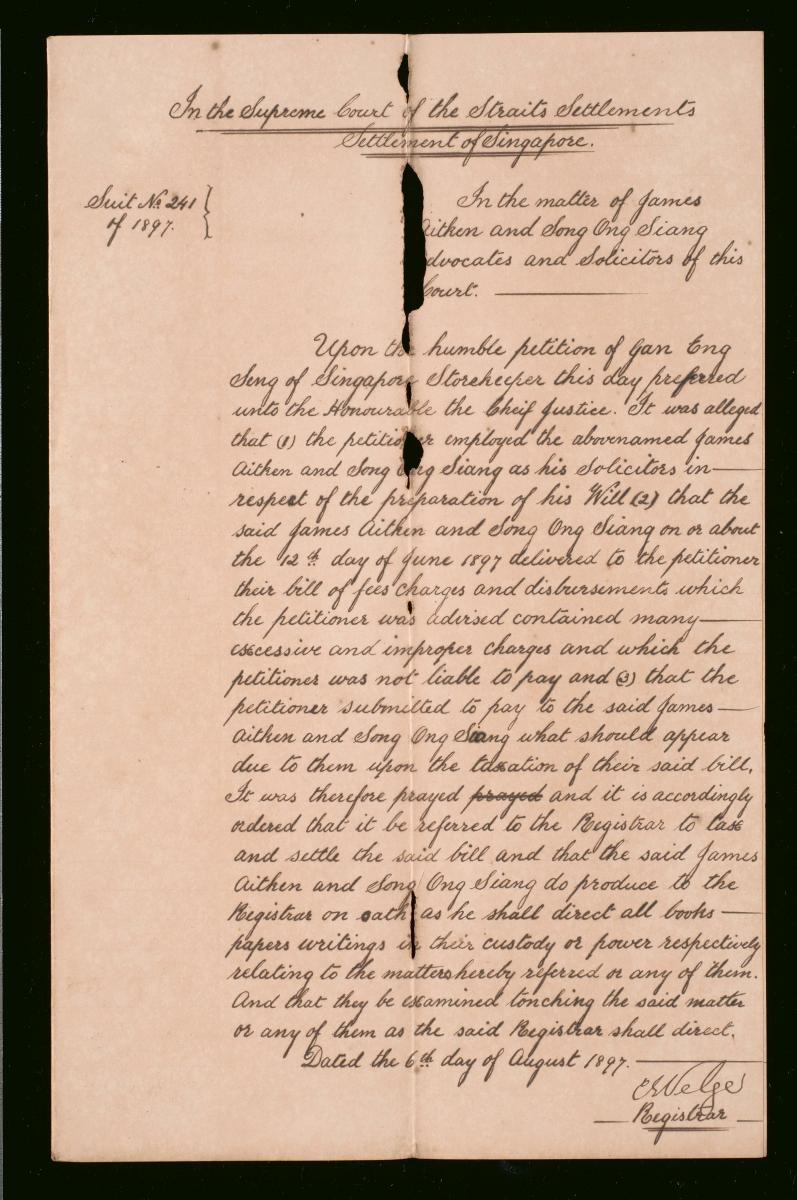 In the Supreme Court of the Straits Settlements
Settlement of Singapore.
Suit No. 241
of 1897.
In the matter of James
Aitken and Song Ong Siang
dvocates and Solicitors of this
Court.
Upon the humble petition of Gan Eng
Seng of Singapore Storekeeper this day preferred
unto the Honourable the Cheif Justice. It was alleged
that (1) the petitioner employed the abovenamed James
Aitken and Song Ong Siang as his Solicitors in
respect of the preparation of his Will (2) that the
said James Aitken and Song Ong Siang on or about
the 12th day of June 1897 delivered to the petitioner
their bill of fees charges and disbursements which
the petitioner was advised contained many
excessive and improper charges and which the
petitioner was not liable to pay and (3) that the
petitioner submitted to pay to the said James
Aitken and Song Ong Siang what should appear
due to them upon the taxation of their said bill.
It was therefore prayed prayed and it is accordingly
ordered that it be referred to the Registrar to tax
and settle the said bill and that the said James
Aitken and Song Ong Siang do produce to the
Registrar on oath as he shall direct all books
papers writings in their custody or power respectively
relating to the matters hereby referred or any of them.
And that they be examined touching the said matter
or any of them as the said Registrar shall direct.
Dated the 6th day of August 1897.
C E Velge
Registrar